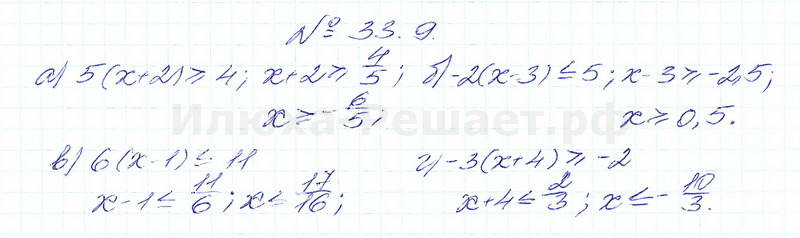 № 33.9.
а) 5(x+2) ≥ 4; x+2 ≥ 4/5; б) -2(x-3) ≤ 5; x-3 ≥ -2,5;
x ≥ -6/5; x ≥ 0,5.
Илюха-Решает.рф
в) 6(x-1) ≤ 11 г) -3(x+4) ≥ -2
x-1 ≤ 11/6; x ≤ 17/16; x+4 ≤ 2/3; x ≤ -10/3.